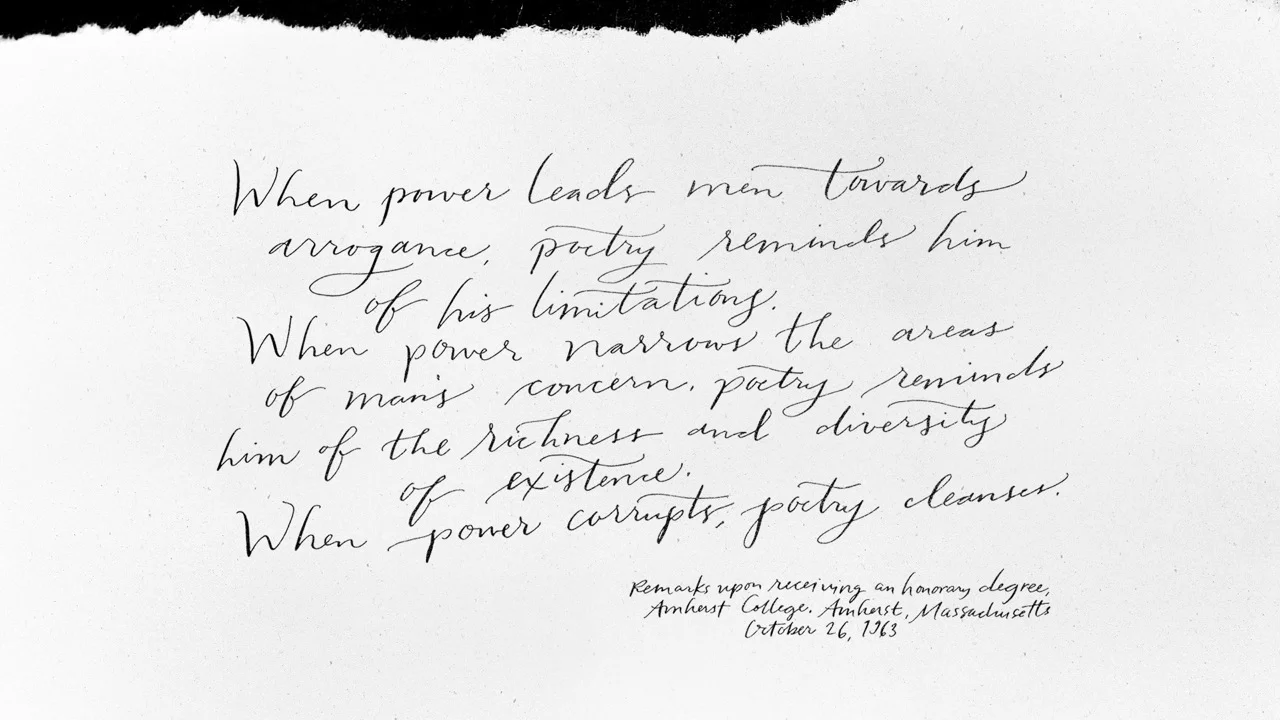 When power leads men towards
arrogance, poetry reminds him
of his limitations.
When power narrows the areas
of man's concern, poetry reminds
him of the richness and diversity
of existence.
When power corrupts, poetry cleanses.
Remarks upon receiving an honorary degree,
Amherst College. Amherst, Massachusetts
October 26, 1963